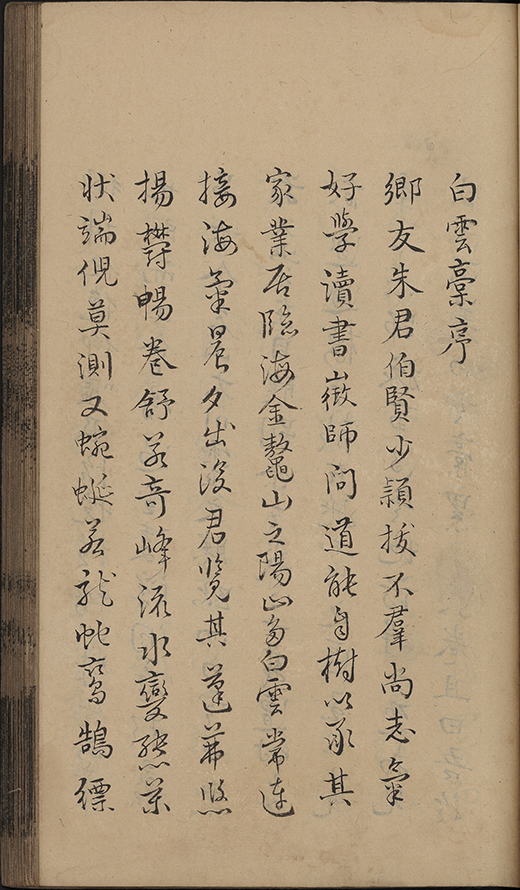 白雲稾序
鄉友朱君伯賢少穎拔不羣尚志氣
好學讀書徵師问道能自樹以承其
家業居臨海金鼇山之陽山多白雲常連
接海氣晨夕出没君覽其蓬茀悠
揚欝暢卷舒若奇峰流水變態萬
狀端倪莫測又蜿蜒若龍蛇鸞鵠縹